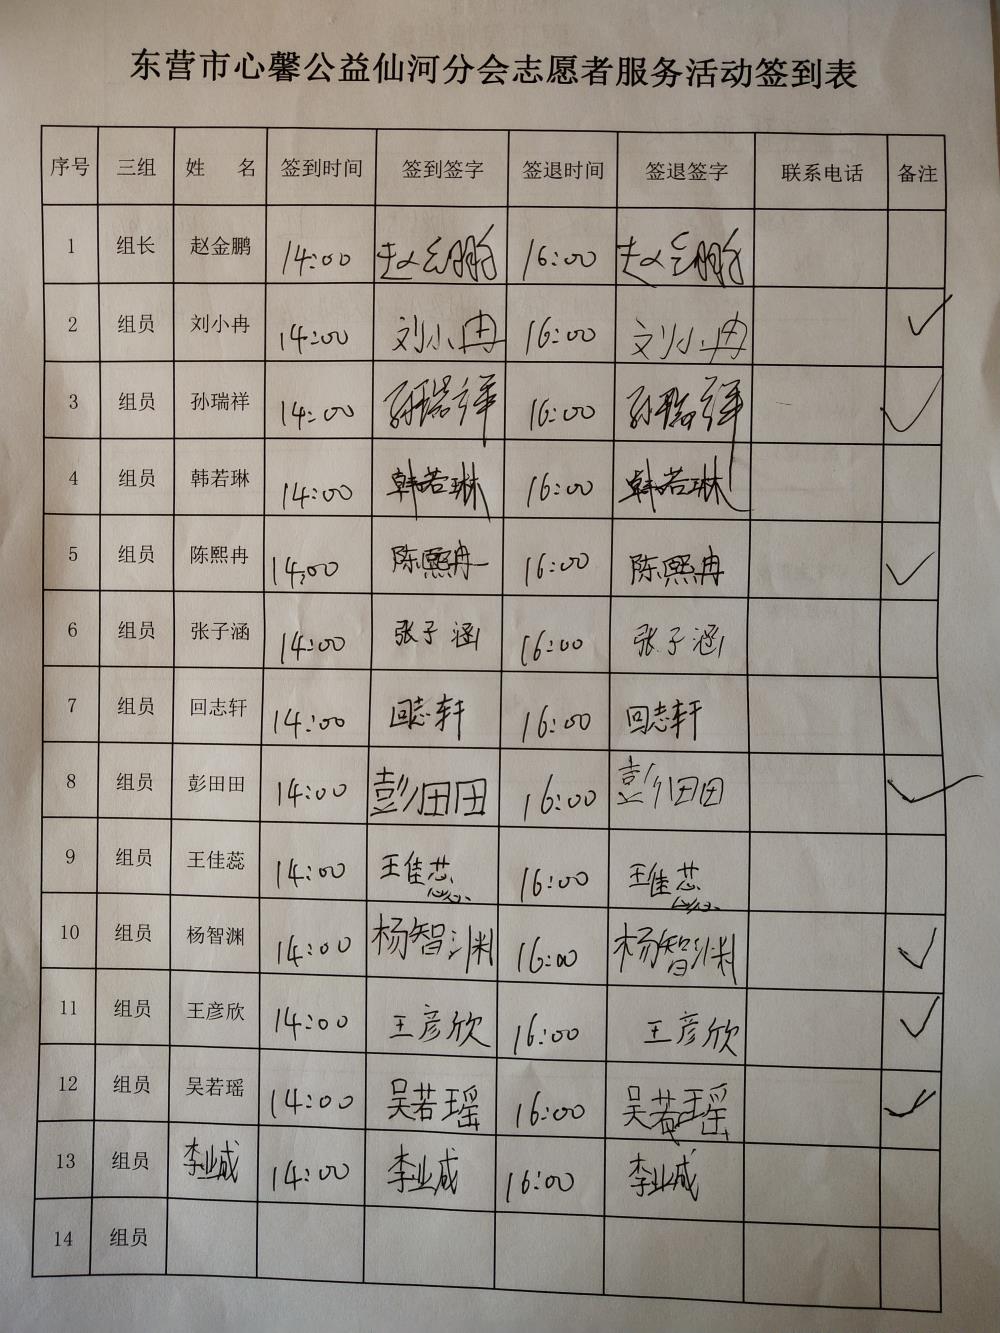 东营市心馨公益仙河分会志愿者服务活动签到表
序号 三组 姓 名 签到时间 签到签字 签退时间 签退签字 联系电话 备注
1 组长 赵金鹏 14:00 赵金鹏 16:00 赵金鹏
2 组员 刘小冉 14:00 刘小冉 16:00 刘小冉 ✓
3 组员 孙瑞祥 14:00 孙瑞祥 16:00 孙瑞祥 ✓
4 组员 韩若琳 14:00 韩若琳 16:00 韩若琳
5 组员 陈熙冉 14:00 陈熙冉 16:00 陈熙冉 ✓
6 组员 张子涵 14:00 张子涵 16:00 张子涵
7 组员 回志轩 14:00 回志轩 16:00 回志轩
8 组员 彭田田 14:00 彭田田 16:00 彭田田 ✓
9 组员 王佳蕊 14:00 王佳蕊 16:00 王佳蕊
10 组员 杨智渊 14:00 杨智渊 16:00 杨智渊 ✓
11 组员 王彦欣 14:00 王彦欣 16:00 王彦欣 ✓
12 组员 吴若瑶 14:00 吴若瑶 16:00 吴若瑶 ✓
13 组员 李业成 14:00 李业成 16:00 李业成
14 组员